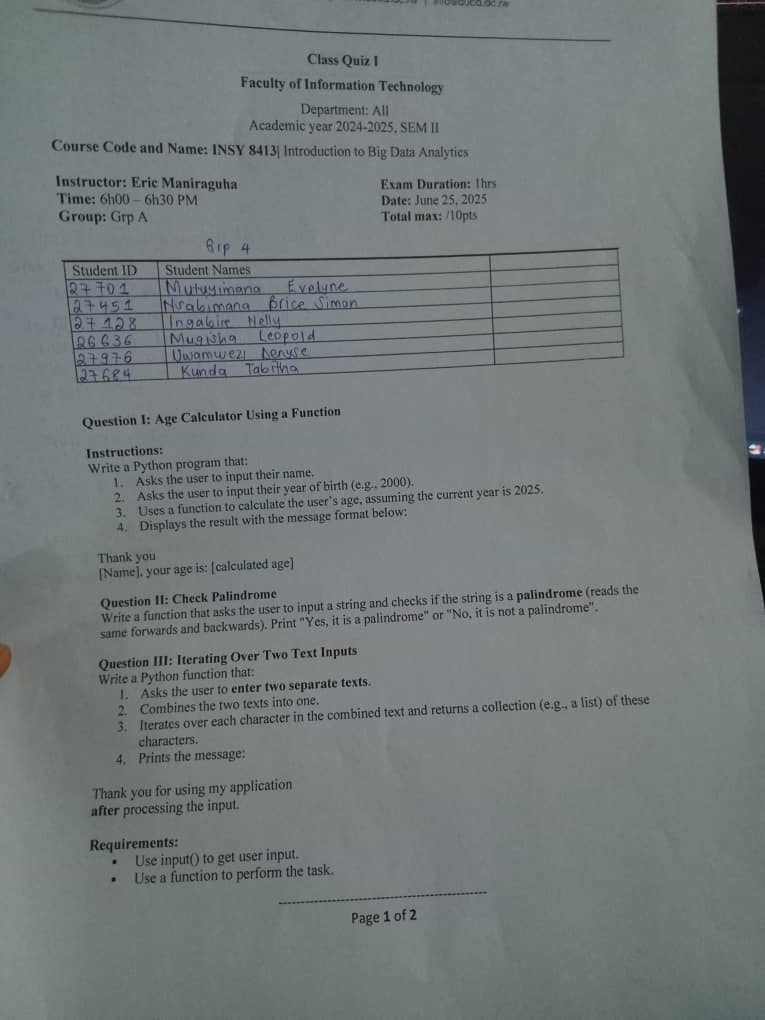 Class Quiz I
Faculty of Information Technology
Department: All
Academic year 2024-2025, SEM II
Course Code and Name: INSY 8413| Introduction to Big Data Analytics
Instructor: Eric Maniraguha Exam Duration: 1hrs
Time: 6h00 – 6h30 PM Date: June 25, 2025
Group: Grp A Total max: /10pts
Grp 4
Student ID Student Names
27701 Mutuyimana Evelyne
27451 Nsabimana Brice Simon
27128 Ingabire Nelly
26636 Mugisha Leopold
27976 Uwamwezi Denyse
27684 Kunda Tabitha
Question I: Age Calculator Using a Function
Instructions:
Write a Python program that:
1. Asks the user to input their name.
2. Asks the user to input their year of birth (e.g., 2000).
3. Uses a function to calculate the user's age, assuming the current year is 2025.
4. Displays the result with the message format below:
Thank you
[Name], your age is: [calculated age]
Question II: Check Palindrome
Write a function that asks the user to input a string and checks if the string is a palindrome (reads the
same forwards and backwards). Print "Yes, it is a palindrome" or "No, it is not a palindrome".
Question III: Iterating Over Two Text Inputs
Write a Python function that:
1. Asks the user to enter two separate texts.
2. Combines the two texts into one.
3. Iterates over each character in the combined text and returns a collection (e.g., a list) of these
characters.
4. Prints the message:
Thank you for using my application
after processing the input.
Requirements:
▪ Use input() to get user input.
▪ Use a function to perform the task.
Page 1 of 2